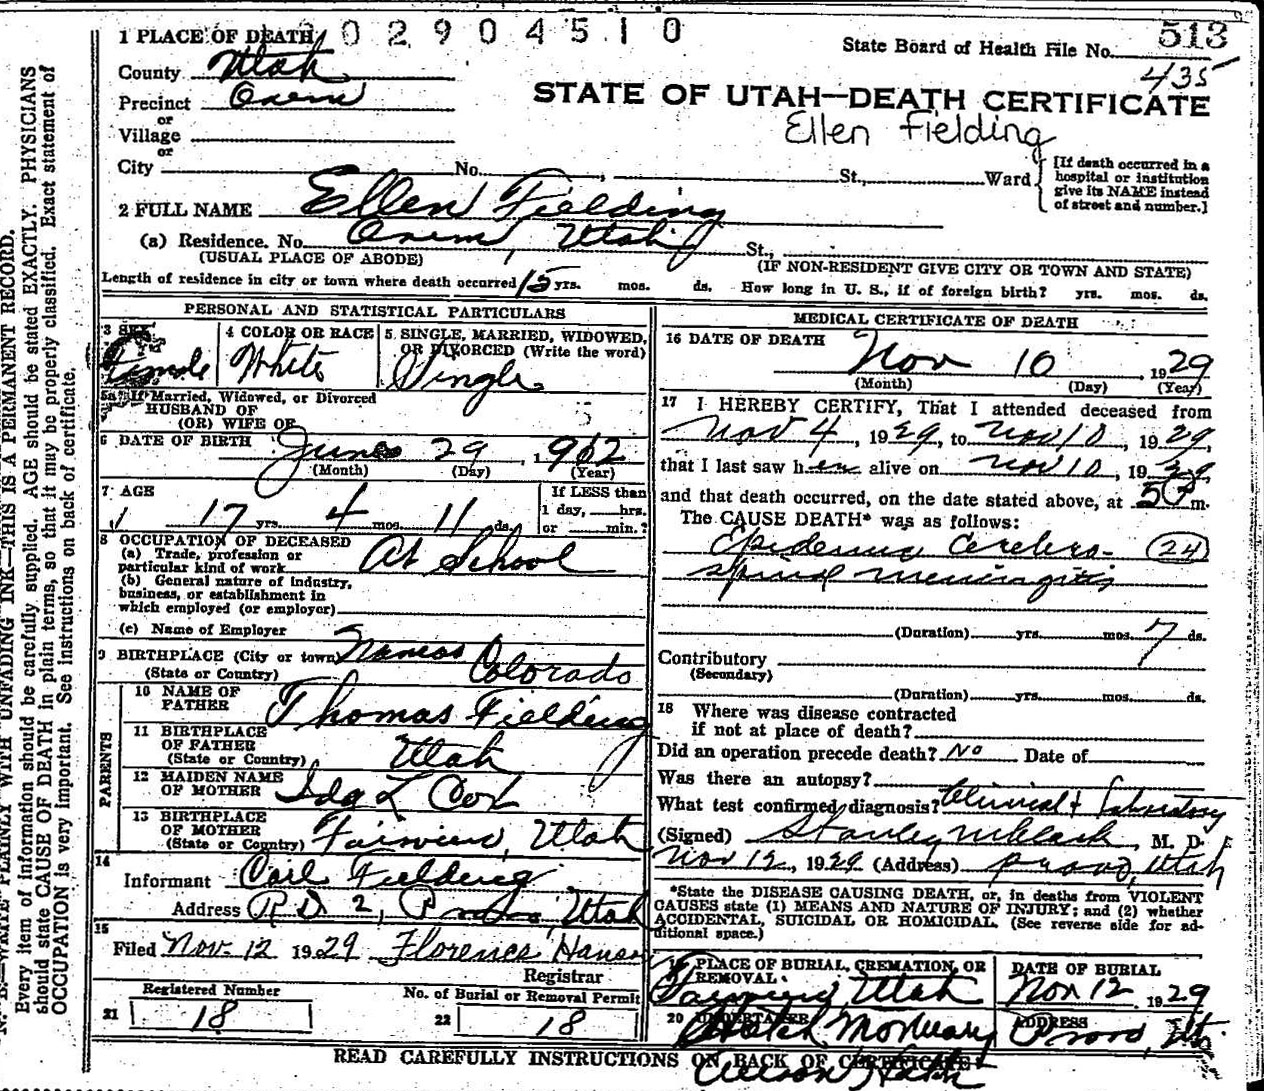 1 PLACE OF DEATH 0 2 9 0 4 5 1 0
State Board of Health File No. 513
435
County Utah
Precinct Orem
or
Village
or
City No. St., Ward
STATE OF UTAH—DEATH CERTIFICATE
Ellen Fielding
[If death occurred in a
hospital or institution
give its NAME instead
of street and number.]
2 FULL NAME Ellen Fielding
(a) Residence. No. Orem, Utah St.,
(USUAL PLACE OF ABODE) (IF NON-RESIDENT GIVE CITY OR TOWN AND STATE)
Length of residence in city or town where death occurred 15 yrs. mos. ds. How long in U. S., if of foreign birth? yrs. mos. ds.
PERSONAL AND STATISTICAL PARTICULARS
3 SEX
Female
4 COLOR OR RACE
White
5 SINGLE, MARRIED, WIDOWED,
OR DIVORCED (Write the word)
Single
5a If Married, Widowed, or Divorced
HUSBAND OF
(OR) WIFE OF
6 DATE OF BIRTH June 29, 1912
(Month) (Day) (Year)
7 AGE
17 yrs. 4 mos. 11 ds.
If LESS than
1 day, hrs.
or min.?
8 OCCUPATION OF DECEASED
(a) Trade, profession or
particular kind of work At School
(b) General nature of industry,
business, or establishment in
which employed (or employer)
(c) Name of Employer
9 BIRTHPLACE (City or town) Colorado
(State or Country)
PARENTS
10 NAME OF
FATHER Thomas Fielding
11 BIRTHPLACE
OF FATHER
(State or Country) Utah
12 MAIDEN NAME
OF MOTHER Ida L Cox
13 BIRTHPLACE
OF MOTHER
(State or Country) Fairview, Utah
14
Informant Fielding
Address R D 2, Provo, Utah
15
Filed Nov. 12 1929 Florence Hansen
Registrar
Registered Number
21 18
No. of Burial or Removal Permit
22 18
MEDICAL CERTIFICATE OF DEATH
16 DATE OF DEATH
Nov 10 1929
(Month) (Day) (Year)
17 I HEREBY CERTIFY, That I attended deceased from
Nov 4, 1929, to Nov 10, 1929,
that I last saw her alive on Nov 10, 1929
and that death occurred, on the date stated above, at 5 P m.
The CAUSE DEATH* was as follows:
Epidemic Cerebro- (24)
spinal meningitis
(Duration) yrs. mos. 7 ds.
Contributory
(Secondary)
(Duration) yrs. mos. ds.
18 Where was disease contracted
if not at place of death?
Did an operation precede death? No Date of
Was there an autopsy?
What test confirmed diagnosis? Clinical + laboratory
(Signed) Stanley M. Clark, M. D.
Nov 12, 1929 (Address) Provo, Utah
*State the DISEASE CAUSING DEATH, or, in deaths from VIOLENT
CAUSES state (1) MEANS AND NATURE OF INJURY; and (2) whether
ACCIDENTAL, SUICIDAL OR HOMICIDAL. (See reverse side for ad-
ditional space.)
19 PLACE OF BURIAL, CREMATION, OR
REMOVAL
Fairview, Utah
DATE OF BURIAL
Nov 12 1929
20 UNDERTAKER
Hatch Mortuary
ADDRESS
Provo, Ut.
READ CAREFULLY INSTRUCTIONS ON BACK OF CERTIFICATE
Hatch
N. B.—WRITE PLAINLY WITH UNFADING INK—THIS IS A PERMANENT RECORD.
Every item of information should be carefully supplied. AGE should be stated EXACTLY. PHYSICIANS
should state CAUSE OF DEATH in plain terms, so that it may be properly classified. Exact statement of
OCCUPATION is very important. See instructions on back of certificate.